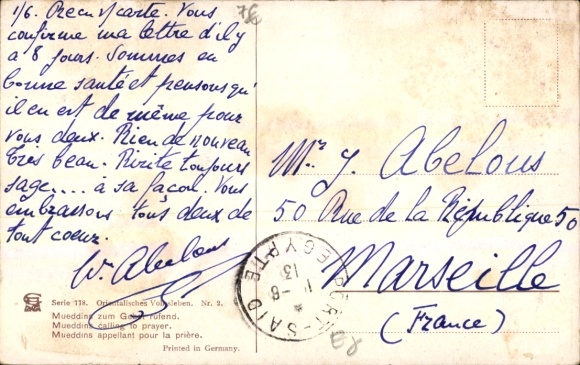 1/6. Reçu v/carte. Vous
confirme ma lettre d'il y
a 8 jours. Sommes en
bonne santé et pensons qu'
il en est de même pour
vous deux. Rien de nouveau
Très beau. Ririte toujours
sage.... à sa façon. Vous
embrassons tous deux de
tout coeur.
W. Abelous
76
Mr. J. Abelous
50 Rue de la République 50
Marseille
(France)
PORT-SAID
EGYPTE
Serie 118. Orientalisches Volksleben. Nr. 2.
Mueddins zum Gebet rufend.
Mueddins calling to prayer.
Mueddins appellant pour la prière.
Printed in Germany.